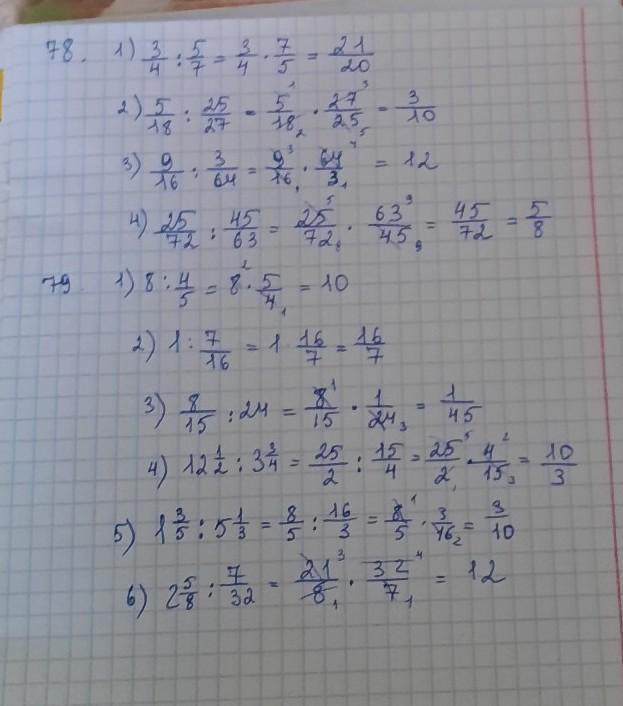 78. 1) 3/4 : 5/7 = 3/4 · 7/5 = 21/20
2) 5/18 : 25/27 = 5¹/18₂ · 27³/25₅ = 3/10
3) 9/16 : 3/64 = 9³/16₁ · 64⁴/3₁ = 12
4) 25/72 : 45/63 = 25⁵/72₈ · 63⁹/45₉ = 45/72 = 5/8
79. 1) 8 : 4/5 = 8² · 5/4₁ = 10
2) 1 : 7/16 = 1 · 16/7 = 16/7
3) 8/15 : 24 = 8¹/15 · 1/24₃ = 1/45
4) 12 1/2 : 3 3/4 = 25/2 : 15/4 = 25⁵/2₁ · 4²/15₃ = 10/3
5) 1 3/5 : 5 1/3 = 8/5 : 16/3 = 8¹/5 · 3/16₂ = 3/10
6) 2 5/8 : 7/32 = 21³/8₁ · 32⁴/7₁ = 12